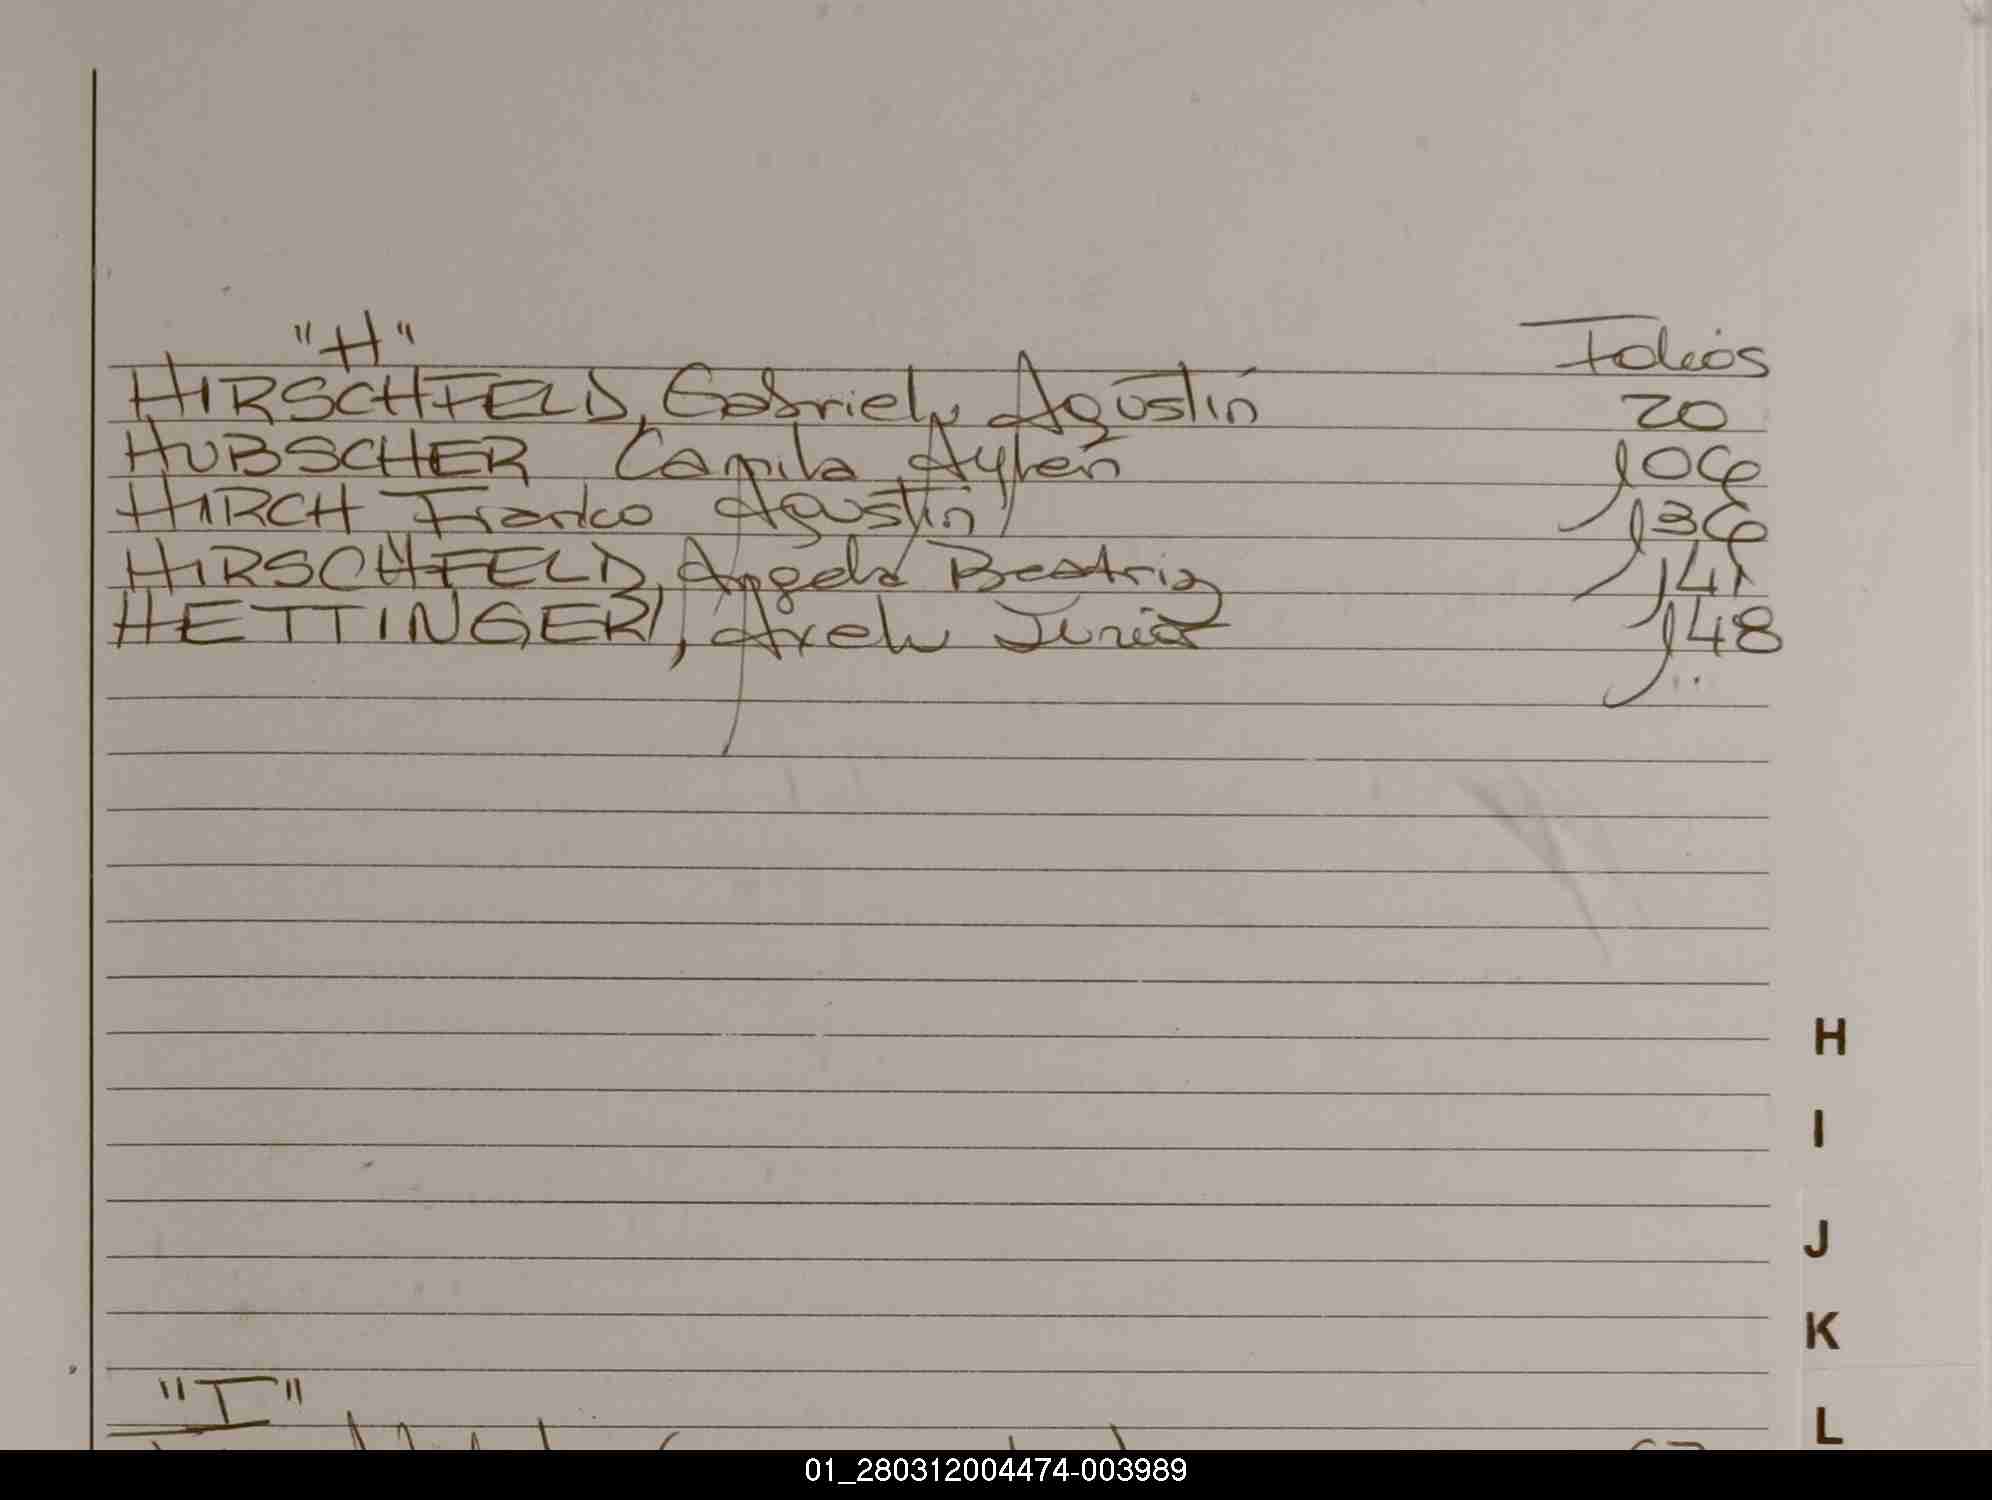 "H" Folios
HIRSCHFELD, Gabriel Agustín 20
HUBSCHER Camila Aylen 106
HIRCH Franco Agustin 136
HIRSCHFELD, Angela Beatriz 141
HETTINGER, Axel Junior 148
H
I
J
K
"I"
L
01_280312004474-003989